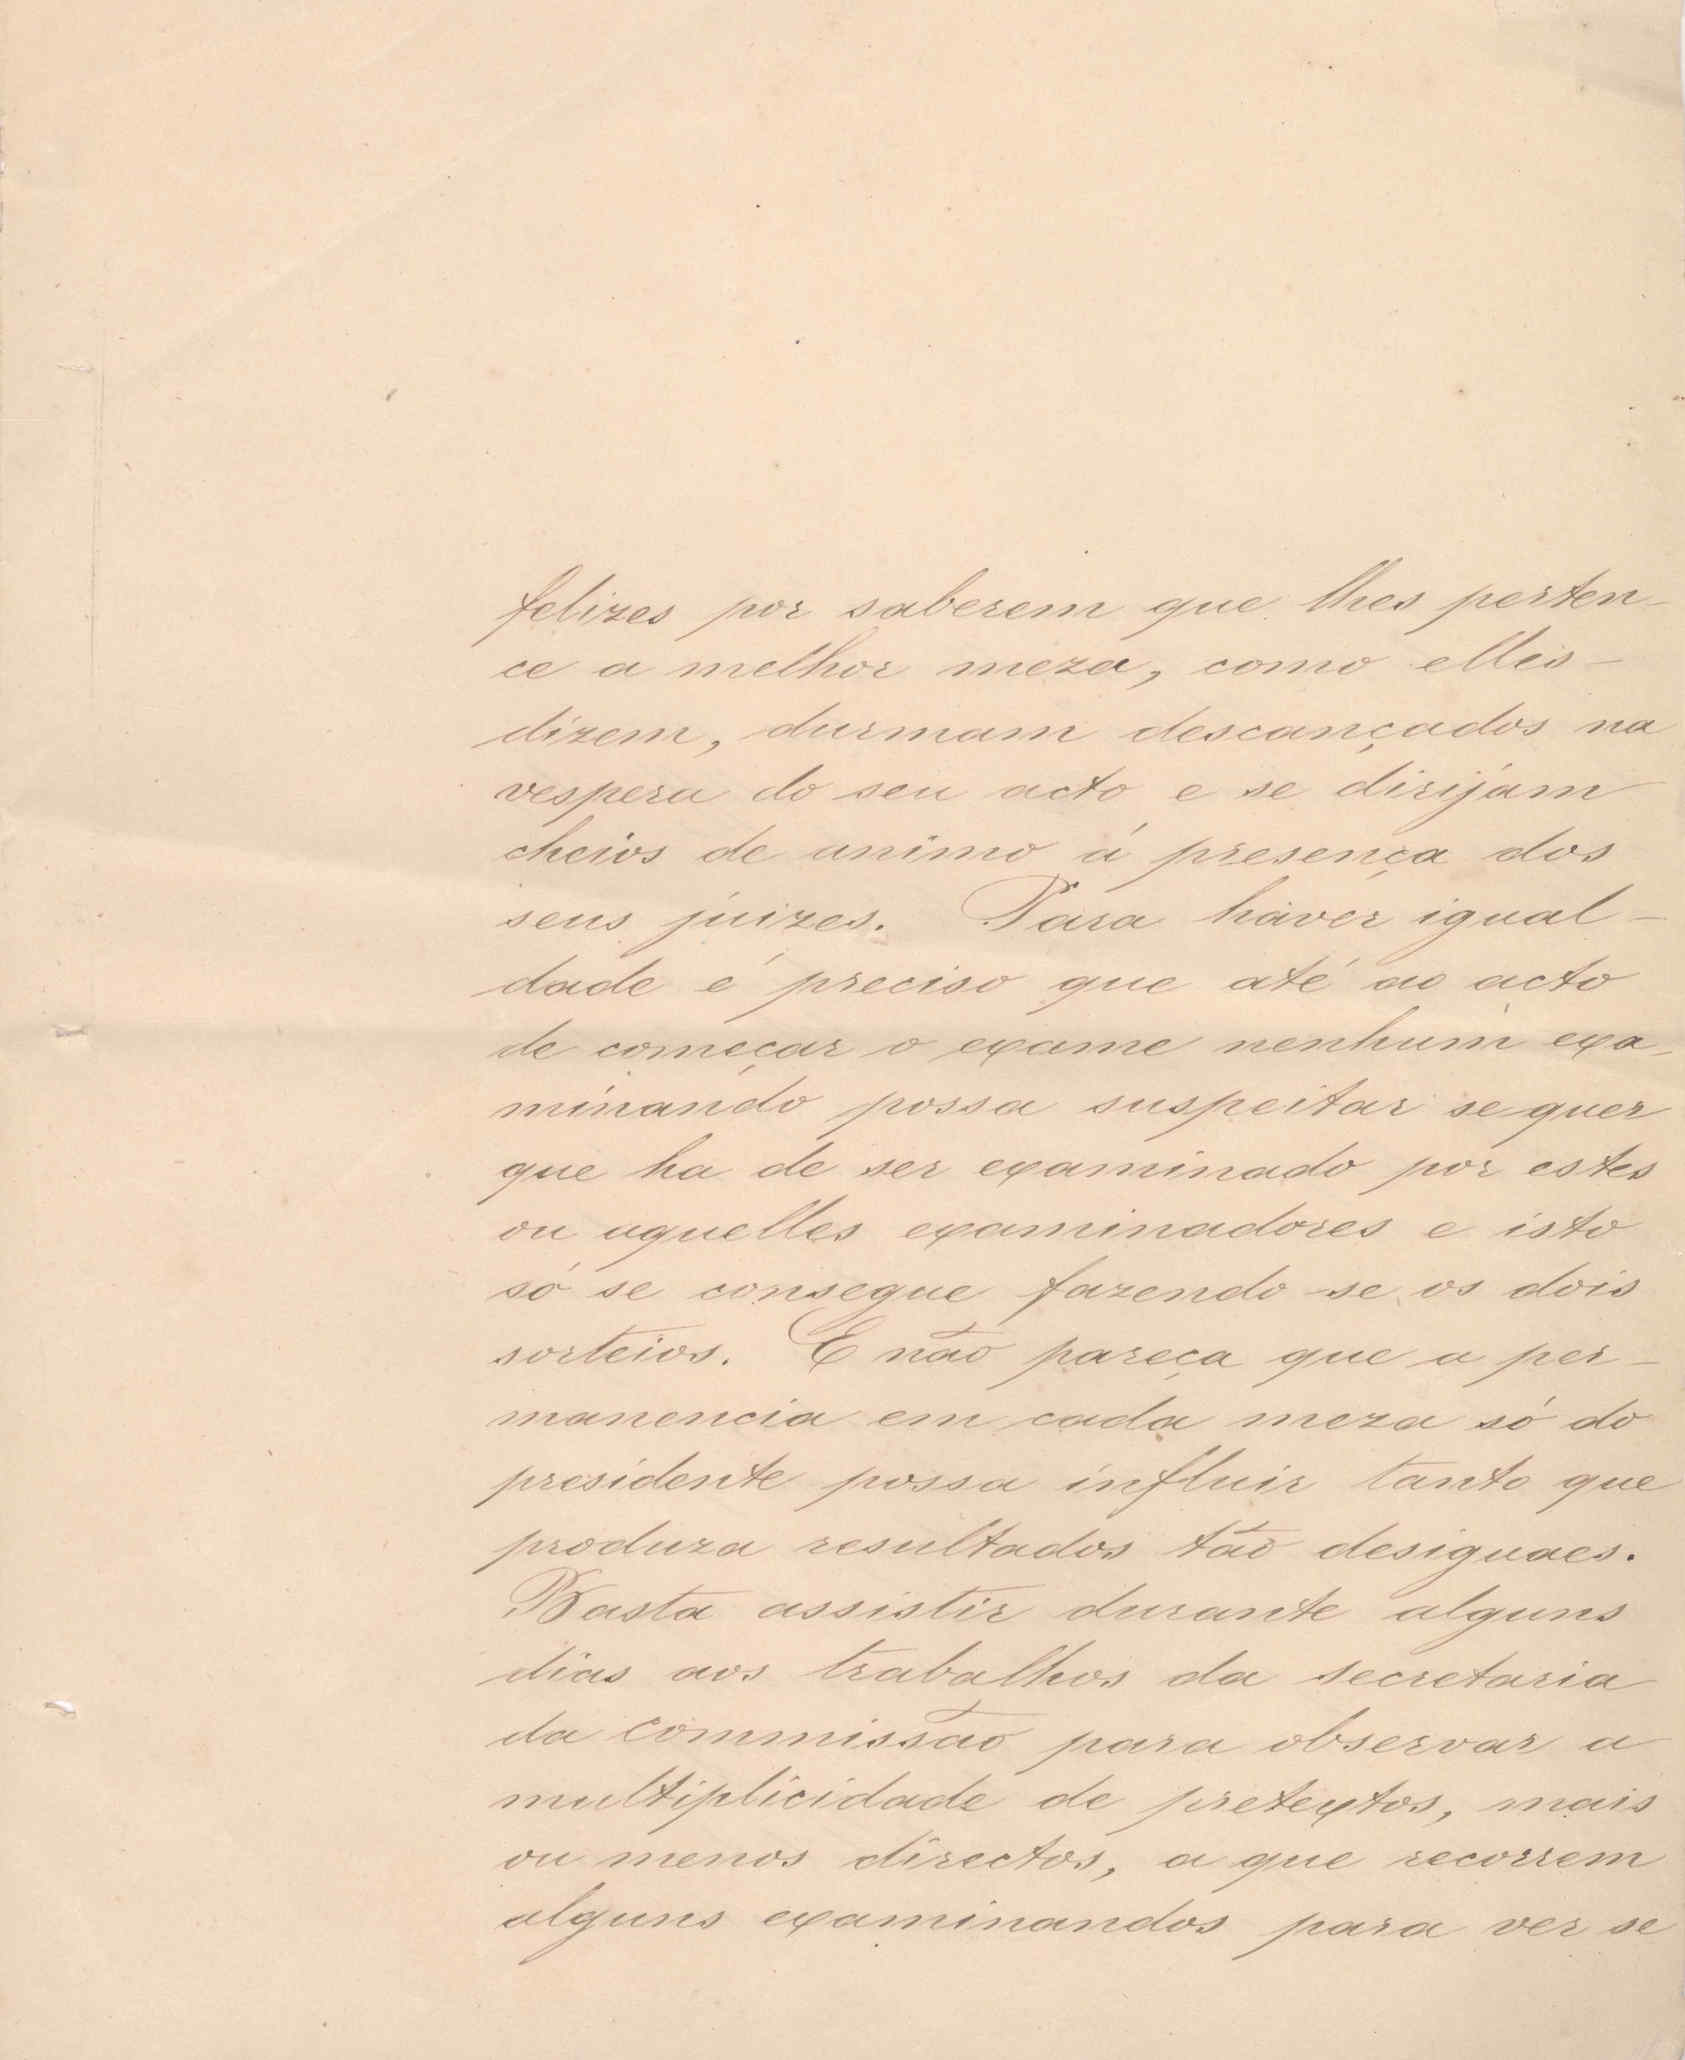 felizes por saberem que lhes perten-
ce a melhor meza, como elles -
dizem, durmam descançados na
vespera do seu acto e se dirijam
cheios de animo á presença dos
seus juizes. Para haver igual-
dade é preciso que até ao acto
de começar o exame nenhum exa-
minando possa suspeitar se quer
que ha de ser examinado por estes
ou aquelles examinadores e isto
só se consegue fazendo-se os dois
sorteios. E não pareça que a per-
manencia em cada meza só do
presidente possa influir tanto que
produza resultados tão desiguaes.
Basta assistir durante alguns
dias aos trabalhos da secretaria
da commissão para observar a
multiplicidade de pretextos, mais
ou menos directos, a que recorrem
alguns examinandos para ver se